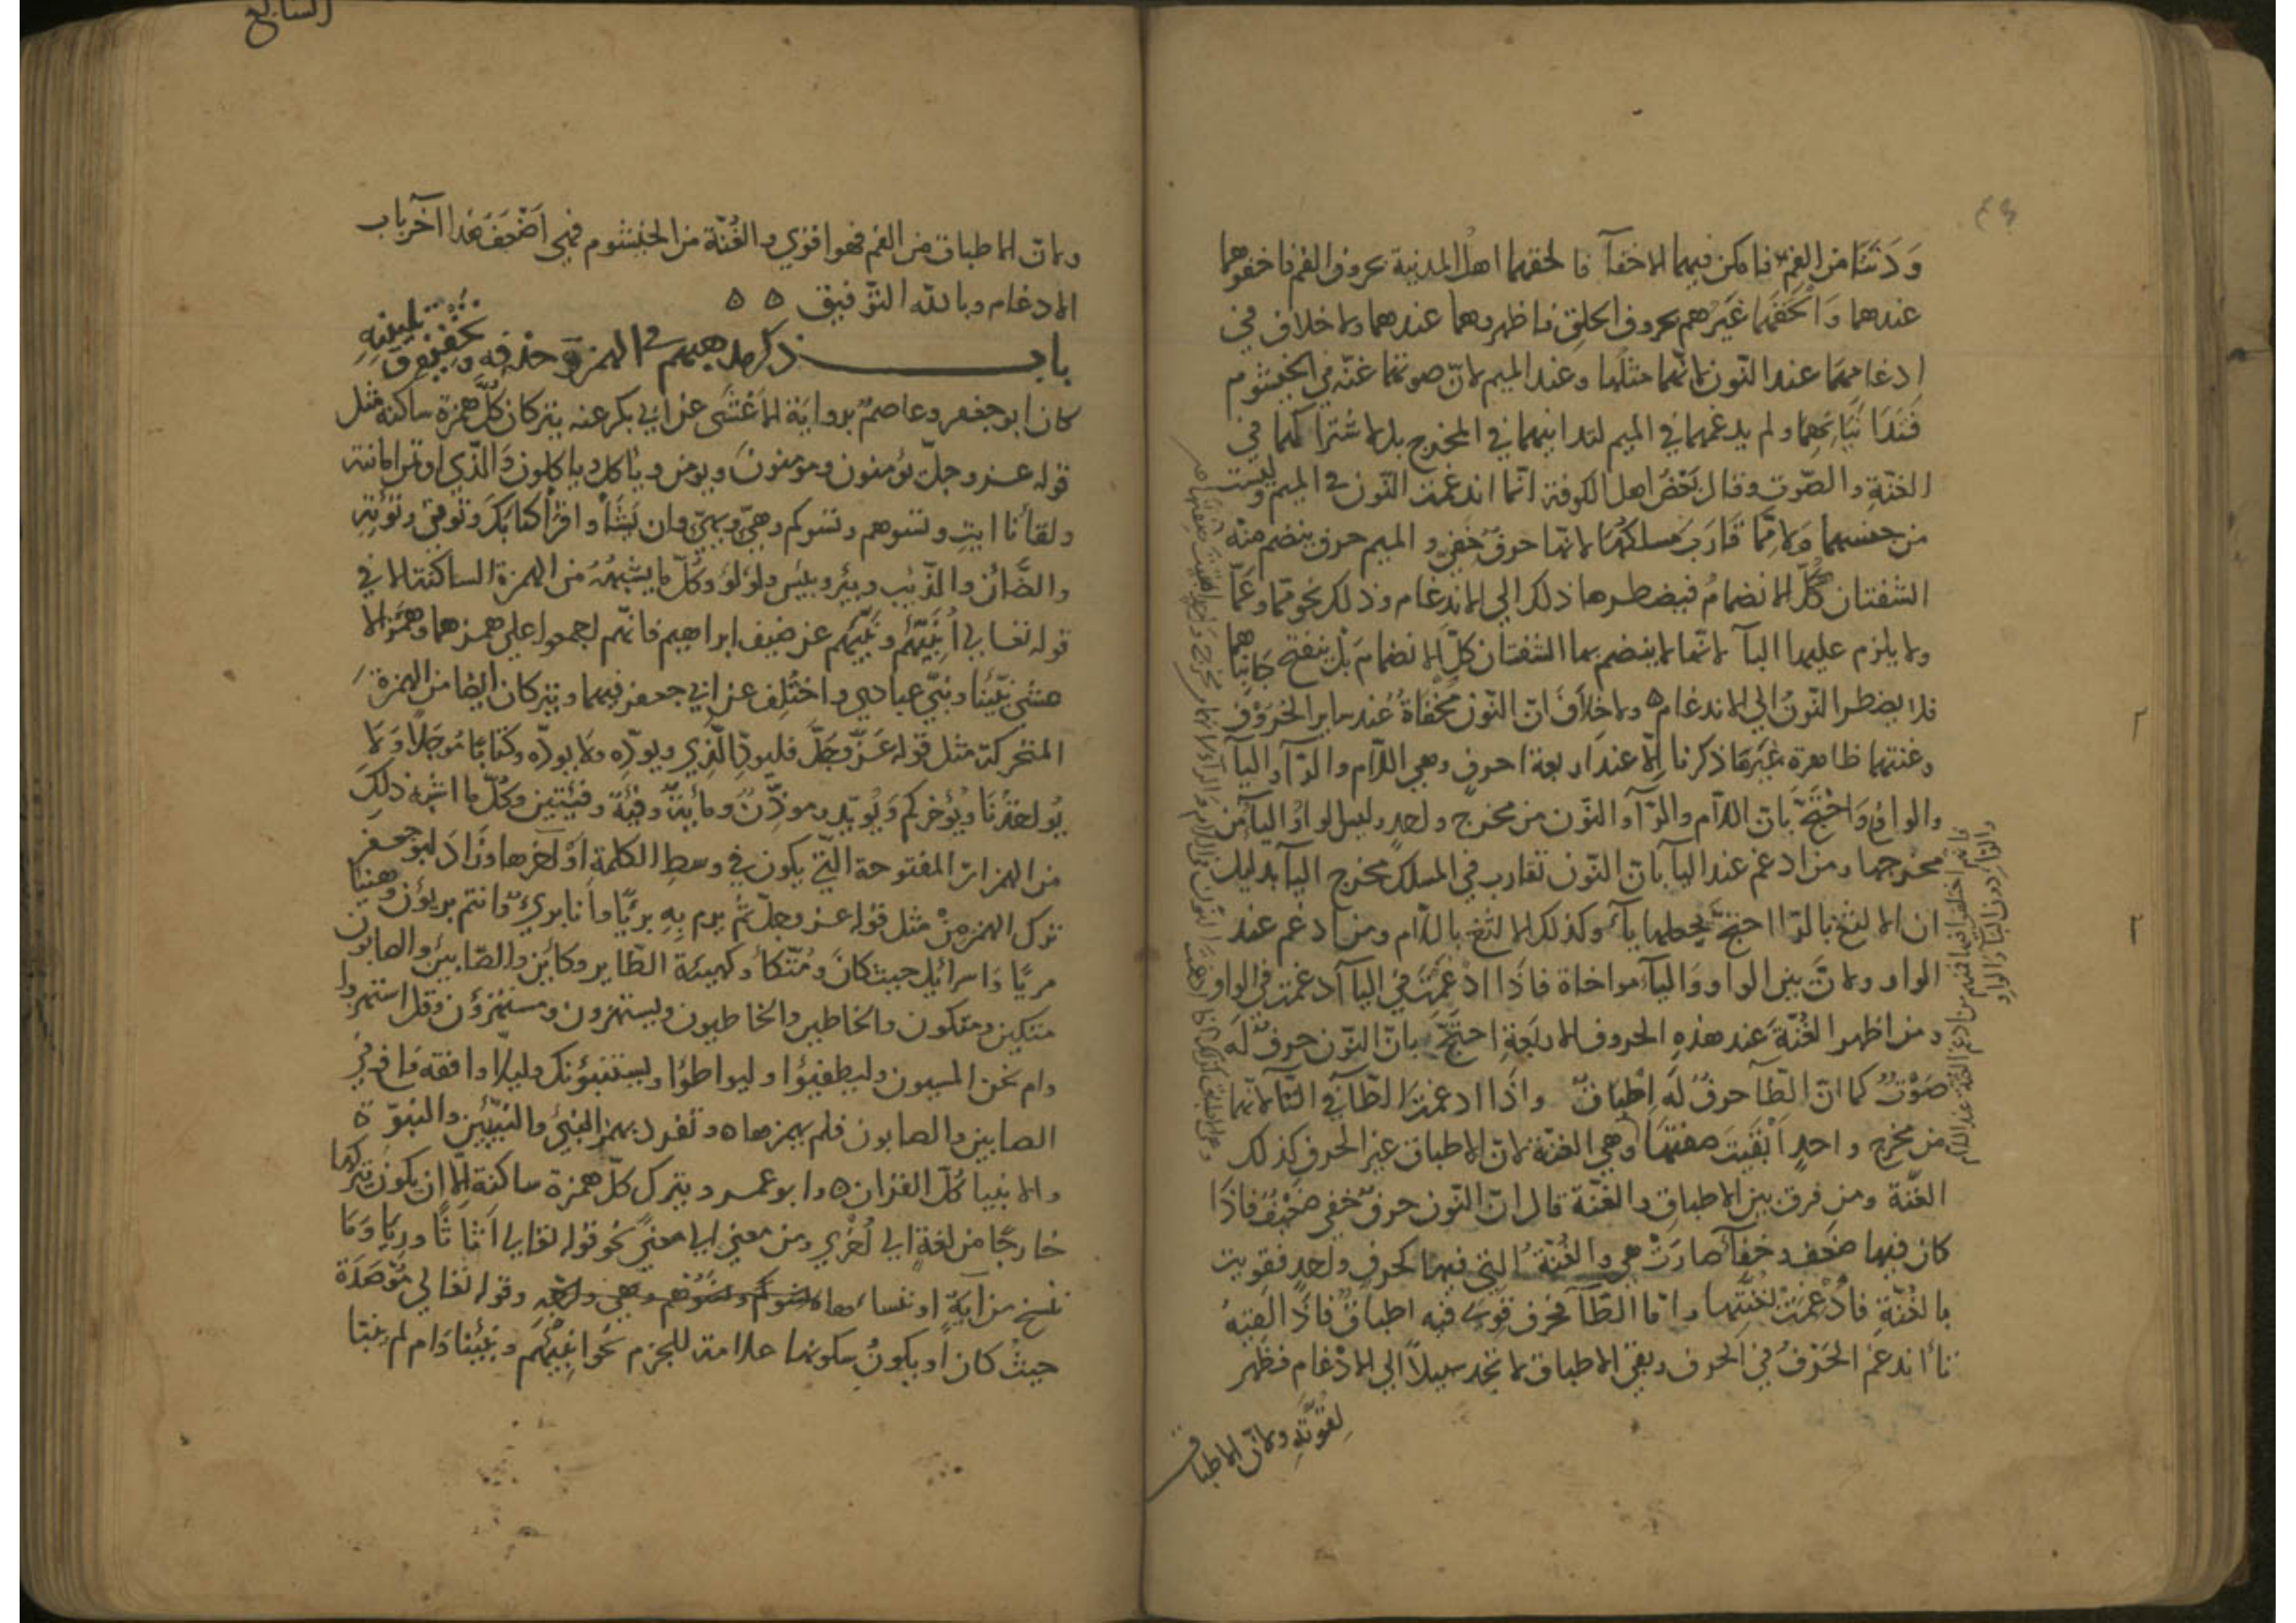 ودنتا من الفم فامكن فيهما الاخفآ فالحقهما اهل المدينة بحروف الفم فاخفوهما
عندهما وَالحقهما غيرهم بحروف الحلق فاظهروهما عندهما ولا خلاف في
ادغامهما عند النّون لانّهما مثلها وعند الميم لانّ صوتهما غنّة في الخيشوم
ولم يدغمها في الميم لتدانيهما في المخرج بل لاشتراكهما في
الغنّةِ والصّوت وقال بَعْضُ اهل الكوفة انّما اندغمت النّون في الميم وليست
من جنسهما ولا ممّا قَارَبَ مسلكهما لانها حرف خفيّ والميم حرف ينضم منه
الشفتان كلّ الانضمام فيضطرها ذلك الي الاندغام وذلك نحو ممّا وعَمّا
ولا يلزم عليها البآ لانّها لا ينضم بها الشفتان كلّ الانضمام بَلْ ينفتح جَانباهما
فلا يضطر النّونُ الي الاندغام ٥ ولا خِلافَ انّ النّون مُخْفَاةٌ عند ساير الحُرُوفِ
وغنتها ظاهرة غير ما ذكرنا اِلّا عند اربعة احرفٍ وهي اللّام والرّآ واليآ
والواو وَاحتجّ بانّ اللّام والرّآ والنّون من مخرج واحدٍ وليس الواو واليآ من
مخرجها ومن ادغم عند اليآ بانّ النّون تقارب في المسلك مخرج اليآ بدليل
ان الالثغ بالرّا احتجّ يجعلها يآء وكذلك الالثغ باللّام ومن ادغم عند
الواو ولانّ بين الواو وَاليآءِ مواخاة فاذَا ادْغَمَتْ في اليآ ادغمت في الواو
ومن اظهر الغُنّةَ عند هذهِ الحروف الاربعةِ احتجّ بانّ النّون حرفٌ لَه
صَوْتٌ كما انّ الطّآ حرفٌ لَه اِطْبَاقٌ واذَا ادغمت الطّآ في التّآ لانّهما
من مخرجٍ واحدٍ اَبْقَيتَ صفتها وهي الغنّة لانّ الاطباق غير الحرف كذلك
الغنّة ومن فرق بين الاطباقِ والغنّة قال انّ النّون حرفٌ خفي ضعِيفٌ فاذَا
كان فيها ضعف وخفآ صارَتْ هي والغُنّةُ التي فيها كحرفٍ واحدٍ فقويت
بالغُنّةِ فادْغمَتْ بغُنّتِها وامّا الطّآ فحرف قويٌ فيه اطباقٌ فاذَا لَقيَهُ
تآ اندغم الحَرْفُ في الحرف وبقي الاطباق لا تجد سبيلاً الي الادْغام فظهر
لقوّتهِ ولانّ الاطباق
ولانّ الاطباق من الفم فهو اقوي والغُنّة من الخيشوم فهي اَضْعَف هذا آخر باب
الادغام وبالله التوّفيق ٥ ٥
باب ذكر مذاهبهم في الهمز وحذفه وتحقيقه وتليينه
كان ابو جعفر وعاصم برواية الاَعْشَى عن ابي بكر عنه يتركان كُلَّ همزة ساكنة مثل
قوله عز وجلّ تؤمنون ومؤمنون ويومن وياكل وياكلون وَالّذي اوتمن امانته
ولقآنا ايت وتسوهم وتسوكم وهيّ ويهيّ وان يَشَأ واقرأ كتابك وتؤتي وتؤتيه
والضّان والذّيب وبير وبيس ولؤلؤ وكلّ ما يشبهه من الهمزة الساكنة الا في
قوله تعالي اَنْبِئْهُم ونَبّئهم عن ضيف ابراهيم فانّهم اجمعوا علي همزهما وهمزَ الا
عشي نبّئنا ونبّي عبادي واختُلِف عن ابي جعفر فيهما ويتركان ايضًا من الهمزة
المتحركة مثل قوله عَزّ وجَلَّ فليودِّ الّذِي ويودِّه ولا يودّه وكتابًا مُوجلًا وَلا
يُواخذُنَا ويُؤخركم وَيُويّد ومؤذّنٌ ومائةٌ وفئة وفئتين وكُلّ ما اشبه ذلك
من الهمزات المفتوحة الّتي يكون في وسطِ الكلمة اَوْ آخرها وزَادَ ابو جعفر
ترك الهمز مِنْ مثل قوله عز وجلّ ثُمّ يرم بِهِ بريًّا وانا بريءٌ وانتم بريؤن وهنيئا
مريًّا وَاسرائيل حيث كان ومُتّكأ وكهيئة الطّاير وكاَيّن والصّابئين والصابون
متكين ومتكون والخاطين والخاطيون ويستهزون ومستهزؤن وقل استهزوا
وام نحن المنشون وليطفيؤا وليواطؤا ويستنبؤنك وليلًا وافقه نافع في
الصابين والصابون فلم يهمزها ٥ وتفرد بهمز النّبيّ والنبيّئين والنبوّة
والانبيا كُلّ القرآن ٥ وابو عمرو يترك كلّ همزة ساكنة اِلّا ان يكون تركها
خارجًا من لغةٍ اِلي اُخْري ومن معني الي معنيً نحو قوله تعالي اَثاثًا ورِيَا وَمَا
ننسخ من آيةٍ او ننساها وقوله تعَالي مُؤْصَدَة
حيثُ كان او يكونُ سكونها علامة للجزم نحو اَنْبِئْهُم ونَبّئنا وَام لم يُنَبّا